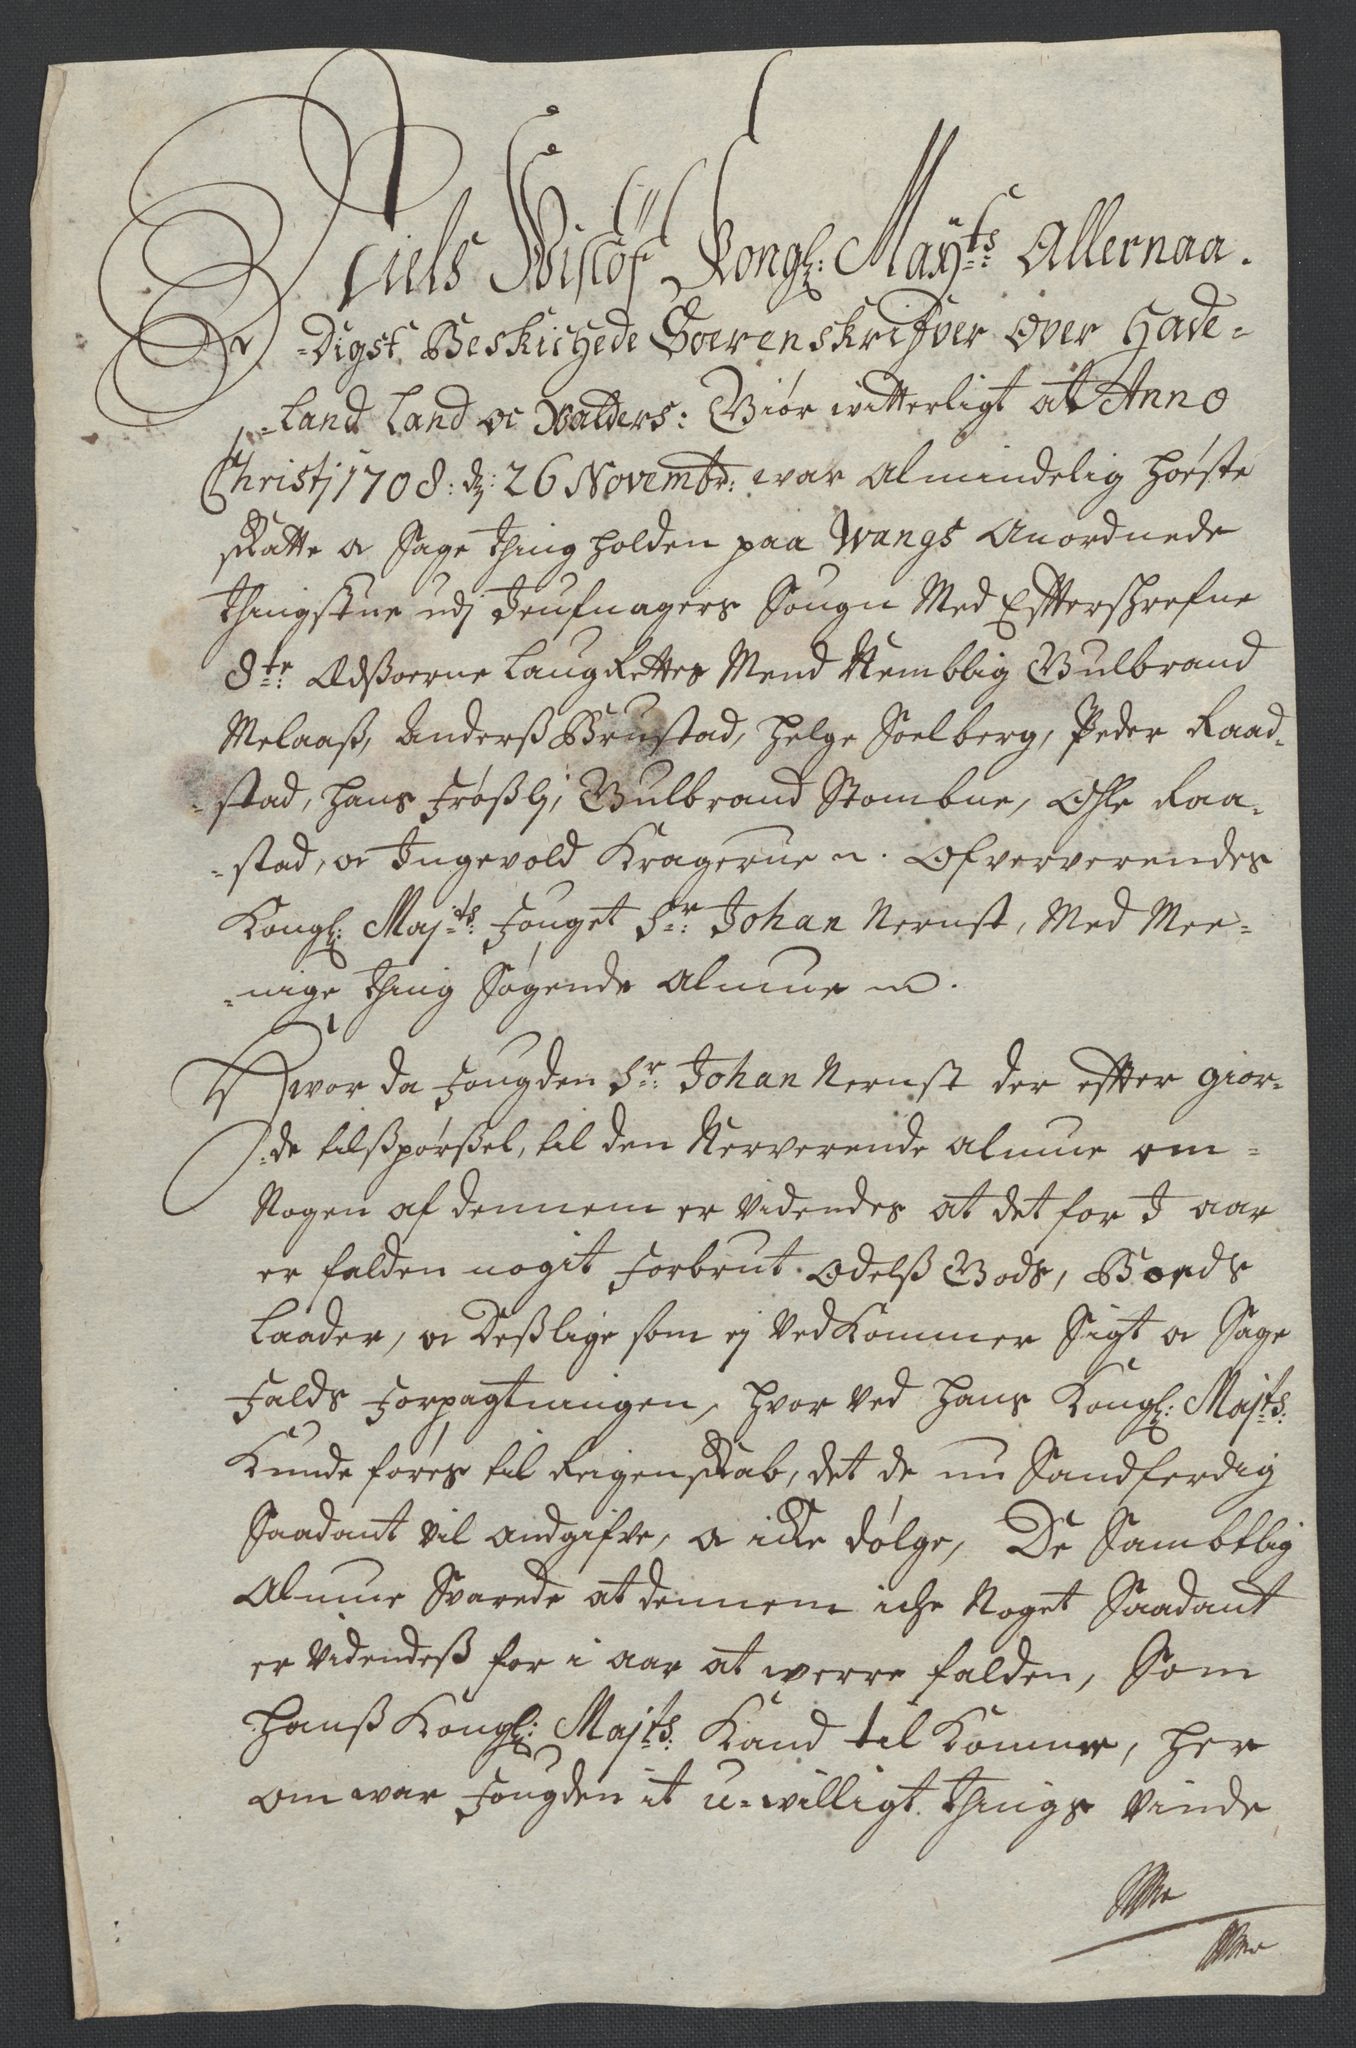 Niels Wislöf Kongl: Mayts Allernaa-
-digst Beskichede Soerenskrifver Over Hade-
-land Land oc Walders: Giör witterligt at Anno
Christj 1708: dz: 26 Novembr: war Almindelig höste
skatte oc Sage thing holden paa Wangs Anordnede
thingstue udj Jeufnagers Sougn Med Efterskrefne
8te: Edsoerne Laug Rettes Mend Nemblig Gulbrand
Melaaß, Anders Brustad, Helge Soelberg, Peder Raad-
-stad, Hans Frößlj, Gulbrand Stombue, Ohle Raa-
-stad, oc Ingevold Kragerue ... Ofververendes
Kongl: Majts: Fouget Sr: Johan Nernst, Med Mee-
-nige thing Søgende Almue ...
Hwor da Fougden Sr: Johan Nernst der efter giör-
-de tilßpörßel, til den Nerverende almue om
Nogen af dennem er Videndes at det for I aar
er falden nogit Forbrut Odelß Gods, Bonds
Laader, oc deßlige som ej VedKommer Sigt oc Sage
Falds Forpagtningen, hvor Ved Hans Kongl: Majts:
Kunde föres til Reigenskab, det de nu Sandferdig
Saadant Vil andgifve, oc icke dölge, De Sambtlig
Almue Svarede at dennem iche Noget Saadant
er Videndeß for i aar at werre falden, Som
Hanß Kongl: Majts: Kand til Komme, Her
om war Fougden it u-willigt things Vinde